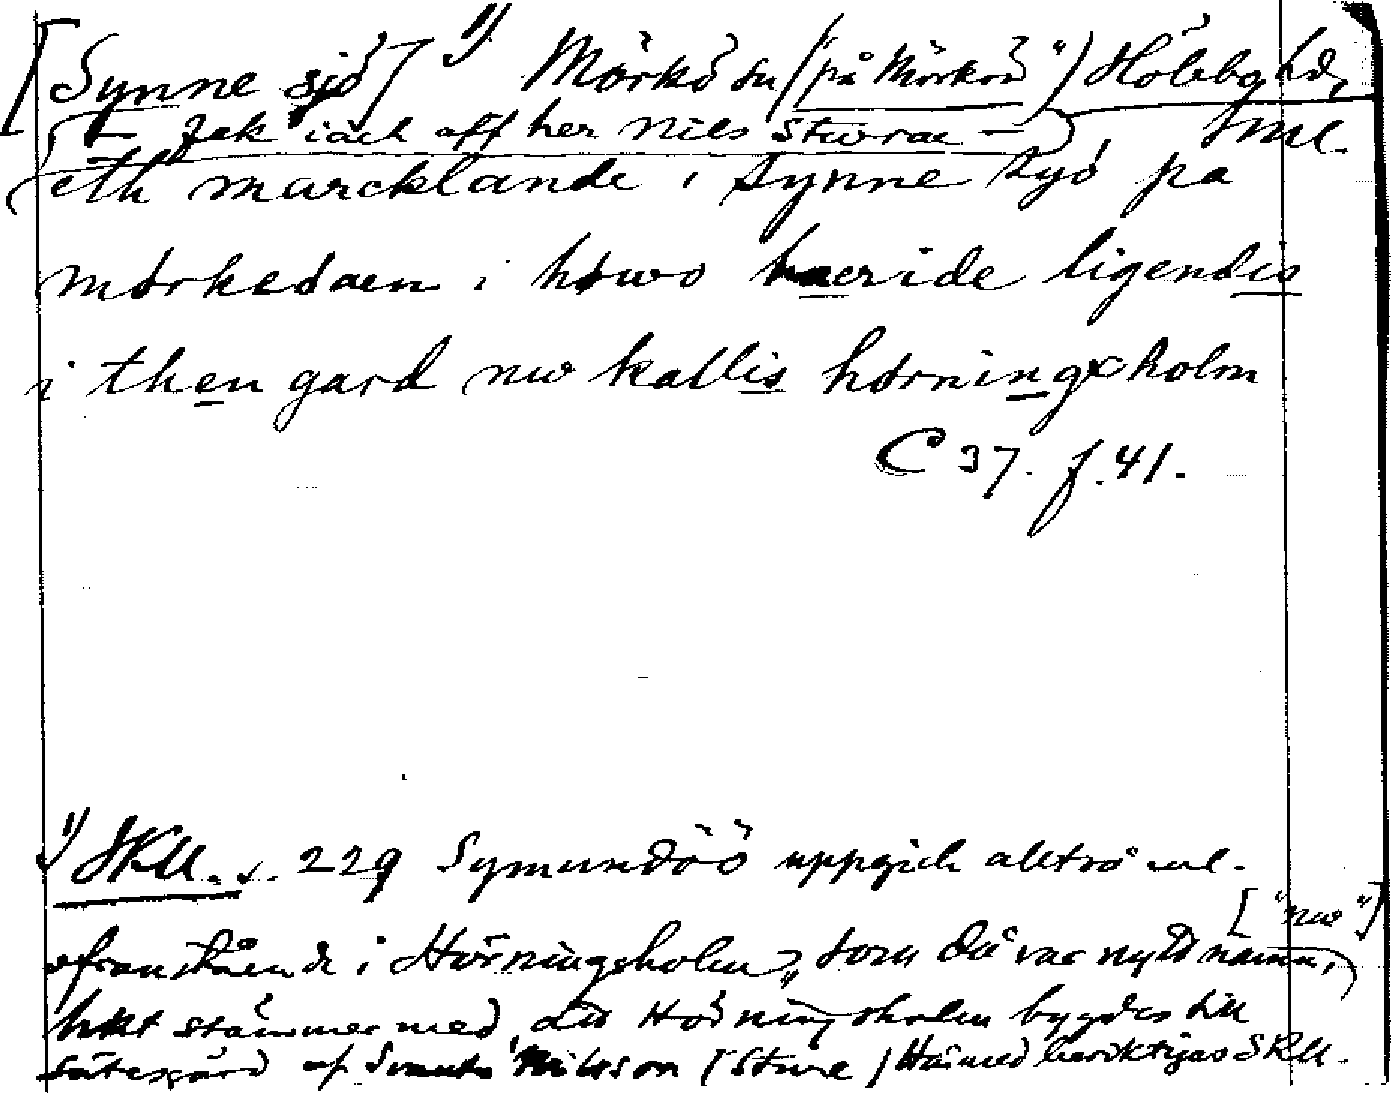 [Synne sjö] 1) Mörkö sn (på Mörkön") Hölebo hd,
(– Jek iack aff her Nils Sturrae –) Sml.
eth marcklande i Synne syö pa
mörkeöaen i höwo haeride ligendis
i then gard nw kallis hörningxholm
C 37. f. 41.
1) SRU. s. 229 Symundöö uppgick alltså enl.
ofranstående i Hörningsholm, som då var nytt namn, ["nw"]
hkt stämmer med att Hörningsholm bygdes till
sätesgård af Svante Nilsson (Sture) Härmed beriktigas SRU.